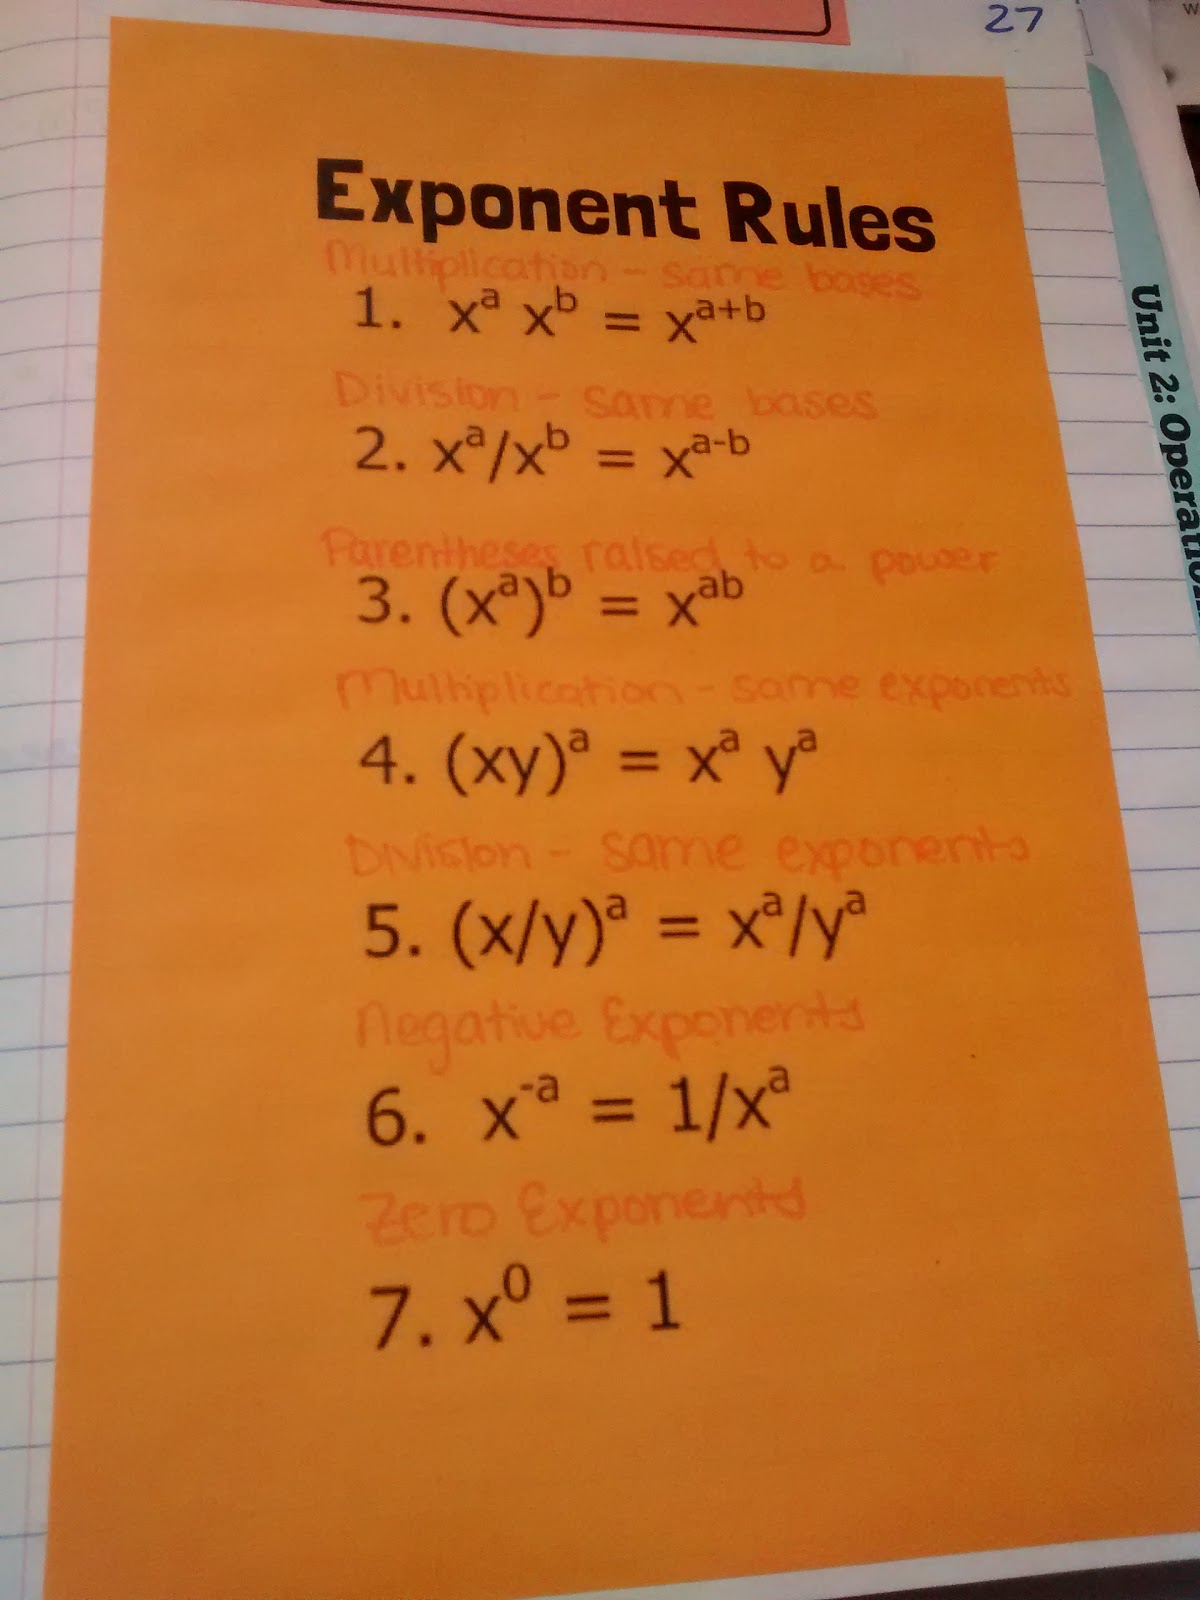 27
Exponent Rules
Multiplication - same bases
1. xᵃ xᵇ = xᵃ⁺ᵇ
Division - same bases
2. xᵃ/xᵇ = xᵃ⁻ᵇ
Parentheses raised to a power
3. (xᵃ)ᵇ = xᵃᵇ
Multiplication - same exponents
4. (xy)ᵃ = xᵃ yᵃ
Division - same exponents
5. (x/y)ᵃ = xᵃ/yᵃ
Negative Exponents
6. x⁻ᵃ = 1/xᵃ
Zero Exponents
7. x⁰ = 1
Unit 2: